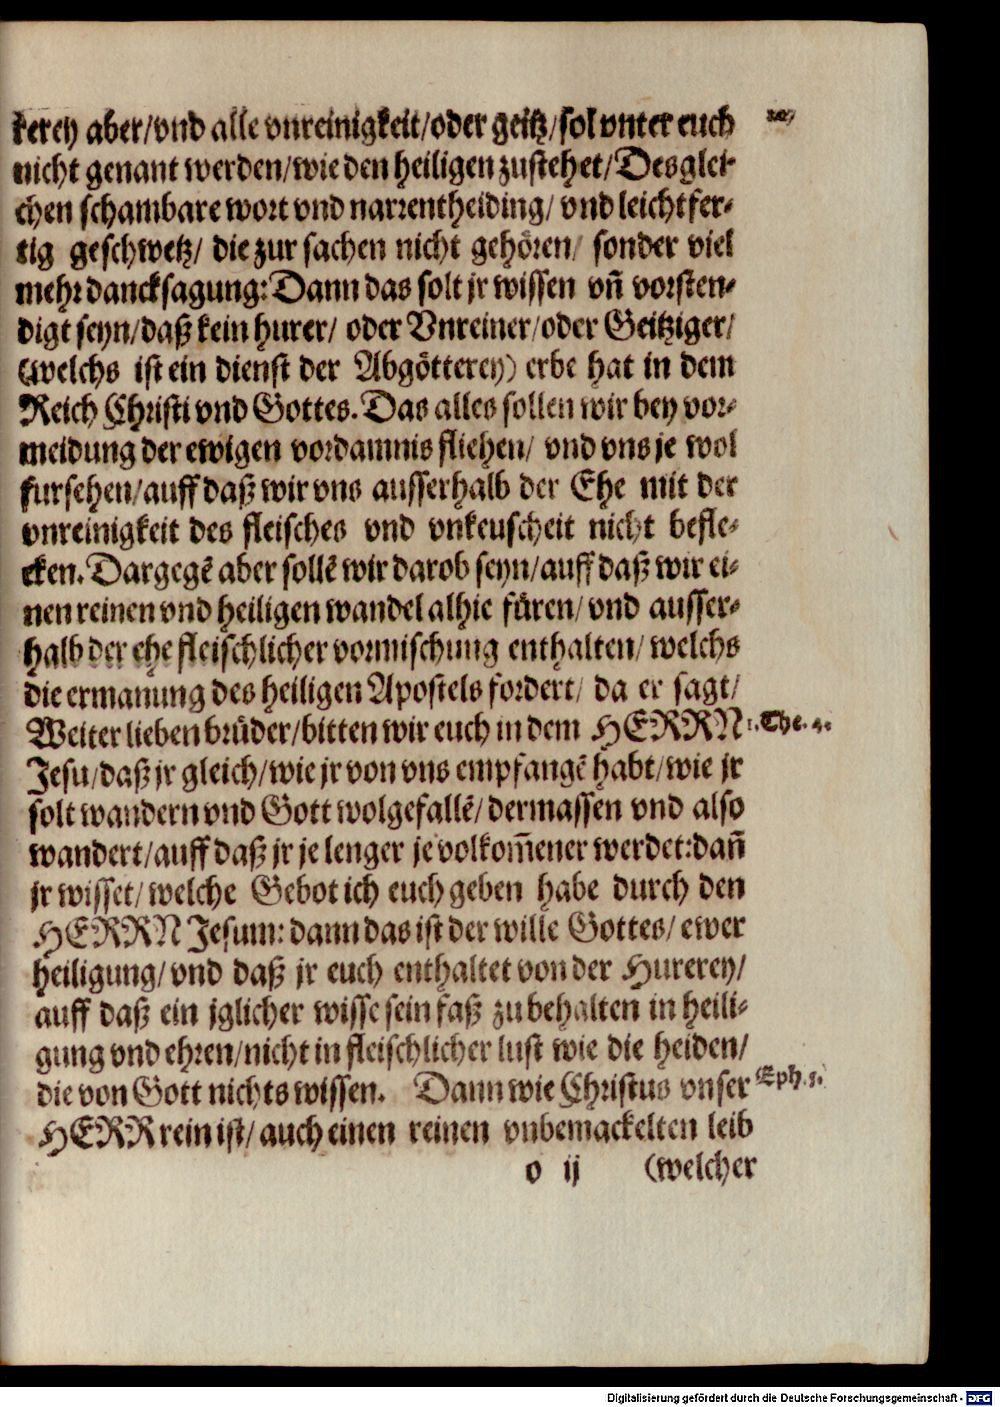 kerey aber/vnd alle vnreinigkeit/oder geitz/sol vnter euch
nicht genant werden/wie den heiligen zustehet/Desglei-
chen schambare wort vnd narrentheiding/ vnd leichtfer-
tig geschwetz/ die zur sachen nicht gehören/ sonder viel
mehr dancksagung: Dann das solt jr wissen vñ vorsten-
digt seyn/daß kein hurer/ oder Vnreiner/oder Geitziger/
(welchs ist ein dienst der Abgötterey) erbe hat in dem
Reich Christi vnd Gottes. Das alles sollen wir bey vor-
meidung der ewigen vordamnis fliehen/ vnd vns je wol
fursehen/auff daß wir vns ausserhalb der Ehe mit der
vnreinigkeit des fleisches vnd vnkeuscheit nicht befle-
cken. Dargegē aber sollē wir darob seyn/auff daß wir ei-
nen reinen vnd heiligen wandel alhie füren/ vnd ausser-
halb der ehe fleischlicher vormischung enthalten/ welchs
die ermanung des heiligen Apostels fordert/ da er sagt/
Weiter lieben brüder/bitten wir euch in dem HERRN 1. The. 4.
Jesu/daß jr gleich/wie jr von vns empfangē habt/wie jr
solt wandern vnd Gott wolgefallē/ dermassen vnd also
wandert/auff daß jr je lenger je volkom̄ener werdet: dañ
jr wisset/ welche Gebot ich euch geben habe durch den
HERRN Jesum: dann das ist der wille Gottes/ ewer
heiligung/ vnd daß jr euch enthaltet von der Hurerey/
auff daß ein jglicher wisse sein faß zu behalten in heili-
gung vnd ehren/nicht in fleischlicher lust wie die heiden/
die von Gott nichts wissen. Dann wie Christus vnser Eph. 5.
HERR rein ist/ auch einen reinen vnbemackelten leib
o ij (welcher
Digitalisierung gefördert durch die Deutsche Forschungsgemeinschaft - DFG